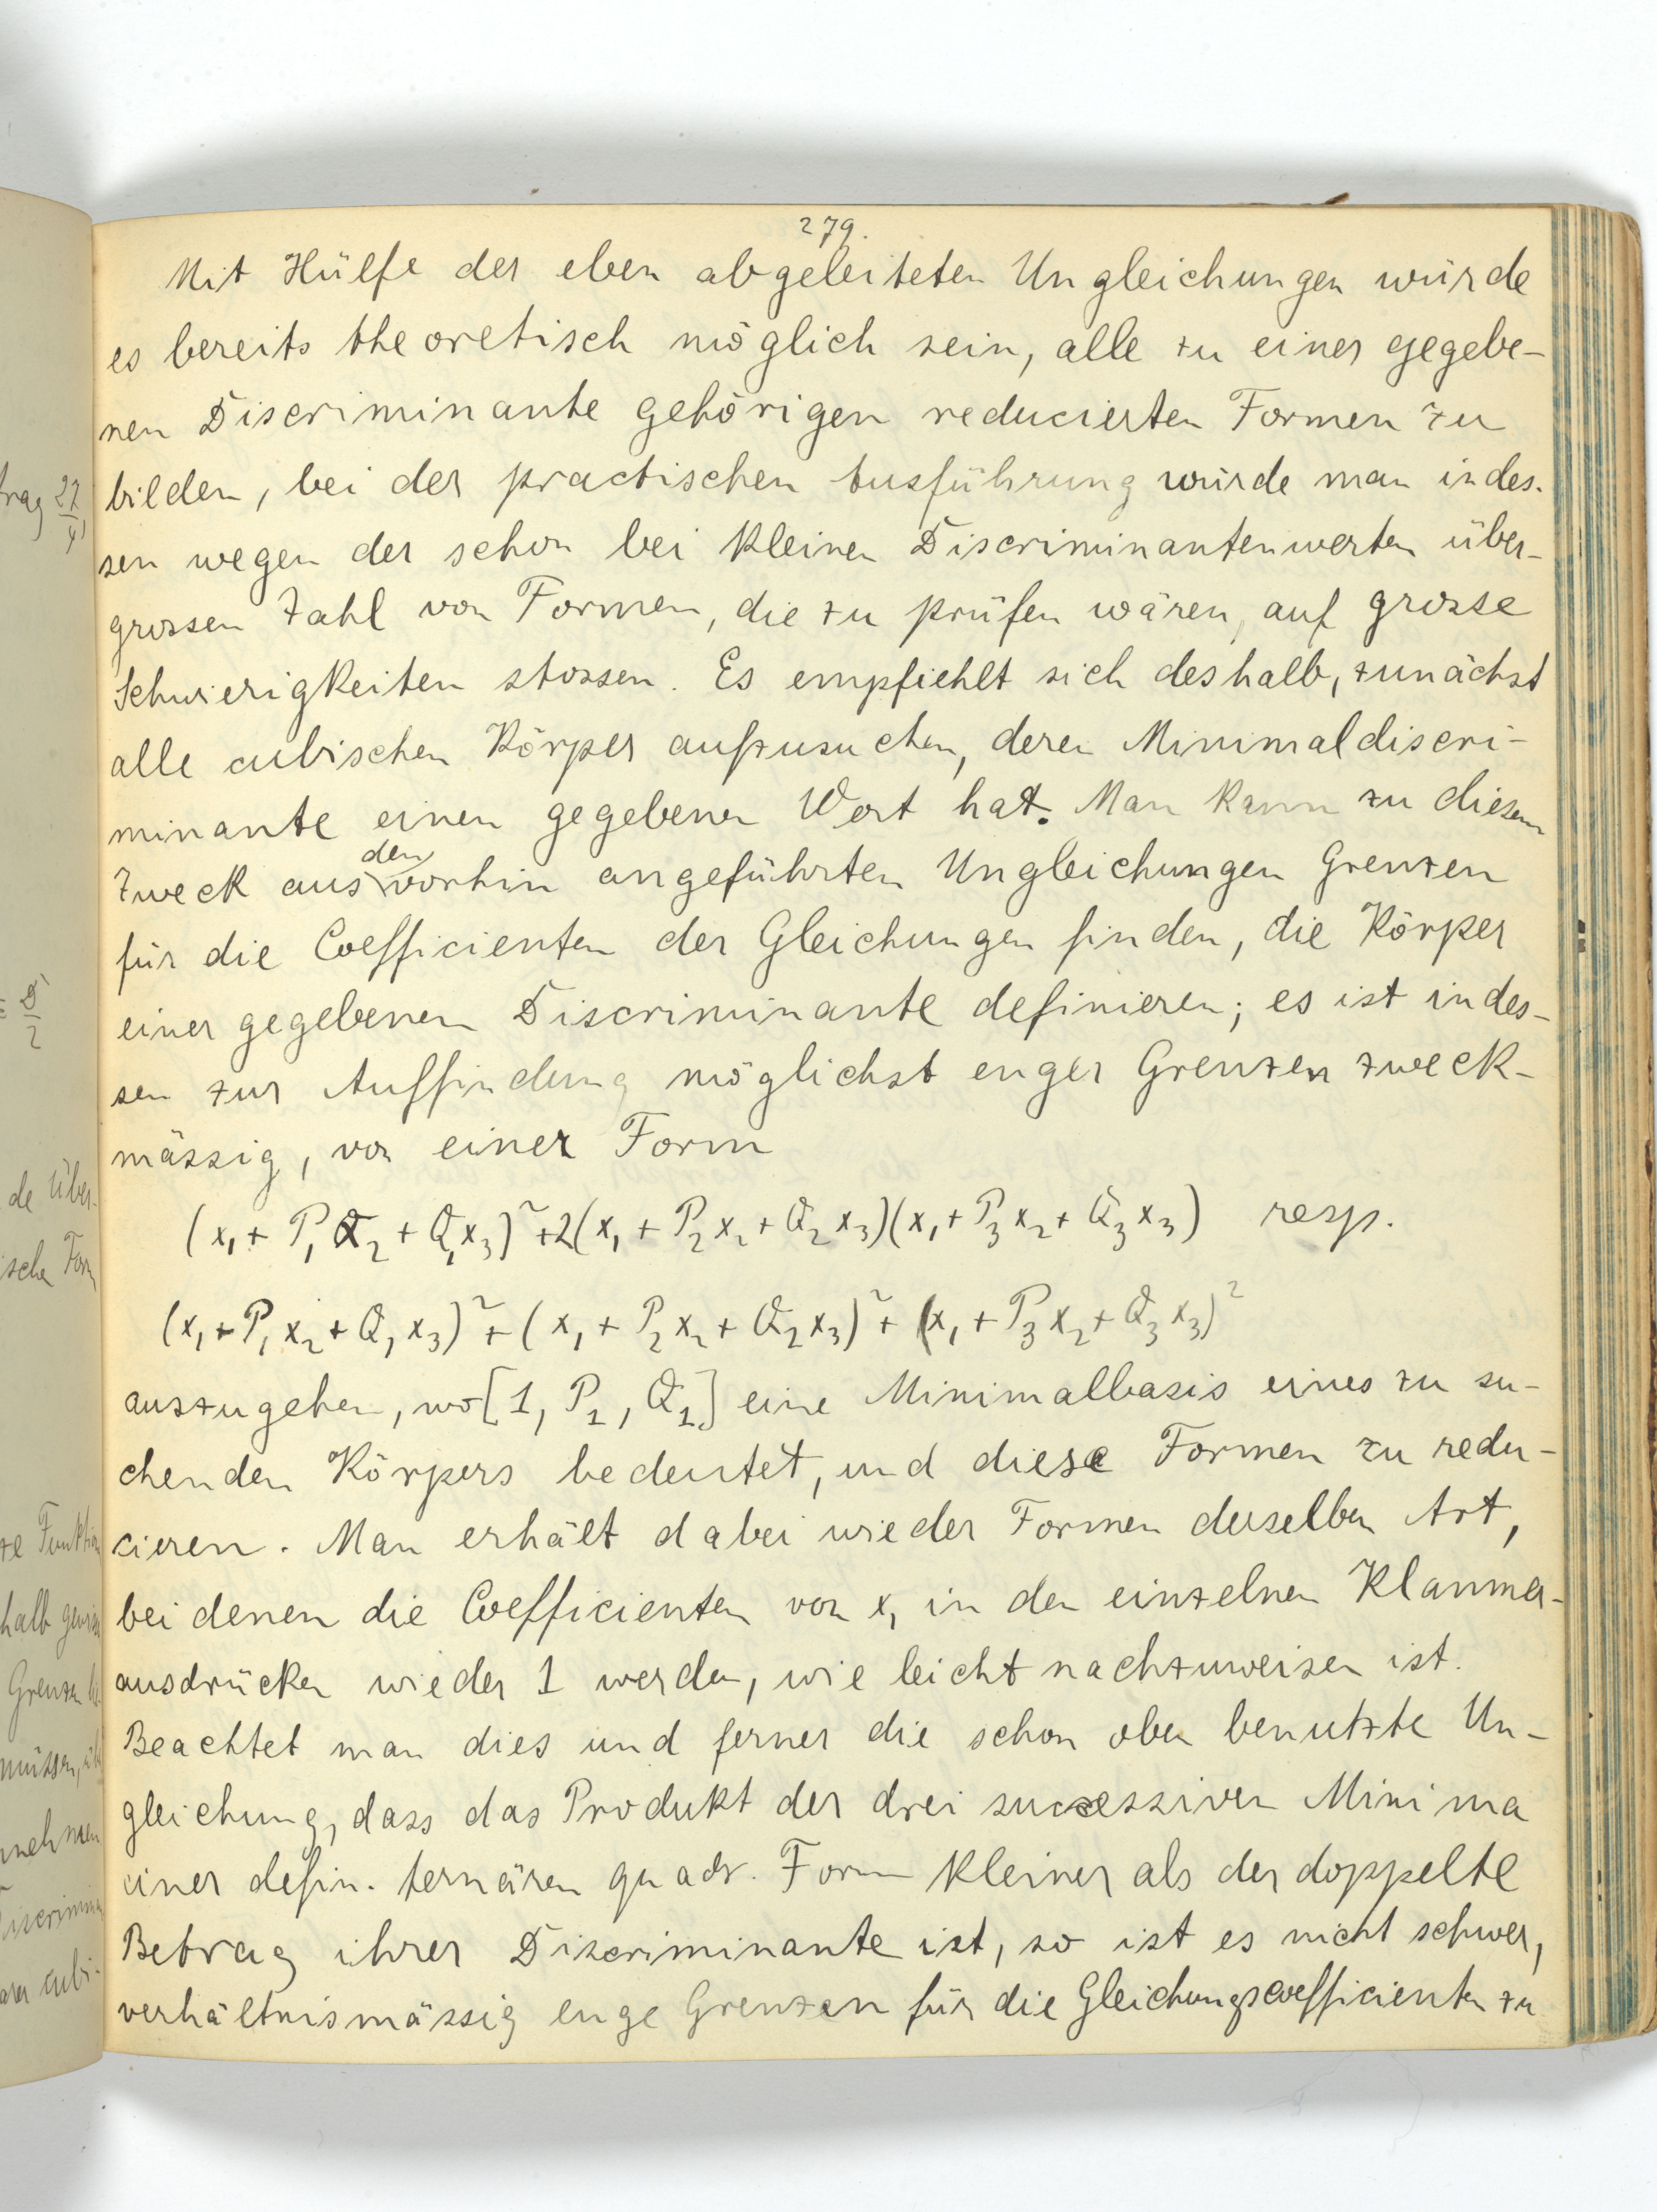 279.
Mit Hülfe der eben abgeleiteten Ungleichungen würde
es bereits theoretisch möglich sein, alle zu einer gegebe-
nen Discriminante gehörigen reducierten Formen zu
bilden, bei der practischen Ausführung würde man indes-
sen wegen der schon bei kleinen Discriminantenwerten über-
grossen Zahl von Formen, die zu prüfen wären, auf grosse
Schwierigkeiten stossen. Es empfiehlt sich deshalb, zunächst
alle cubischen Körper aufzusuchen, deren Minimaldiscri-
minante einen gegebenen Wert hat. Man kann zu diesem
Zweck aus den vorhin angeführten Ungleichungen Grenzen
für die Coefficienten der Gleichungen finden, die Körper
einer gegebenen Discriminante definieren; es ist indes-
sen zur Auffindung möglichst enger Grenzen zweck-
mässig, von einer Form
(x₁ + P₁x₂ + Q₁x₃)² + 2(x₁ + P₂x₂ + Q₂x₃)(x₁ + P₃x₂ + Q₃x₃) resp.
(x₁ + P₁x₂ + Q₁x₃)² + (x₁ + P₂x₂ + Q₂x₃)² + (x₁ + P₃x₂ + Q₃x₃)²
auszugehen, wo [1, P₁, Q₁] eine Minimalbasis eines zu su-
chenden Körpers bedeutet, und diese Formen zu redu-
cieren. Man erhält dabei wieder Formen derselben Art,
bei denen die Coefficienten von x₁ in den einzelnen Klammer-
ausdrücken wieder 1 werden, wie leicht nachzuweisen ist.
Beachtet man dies und ferner die schon oben benutzte Un-
gleichung, dass das Produkt der drei successiven Minima
einer defin. ternären quadr. Form kleiner als der doppelte
Betrag ihrer Discriminante ist, so ist es nicht schwer,
verhältnismässig enge Grenzen für die Gleichungscoefficienten zu